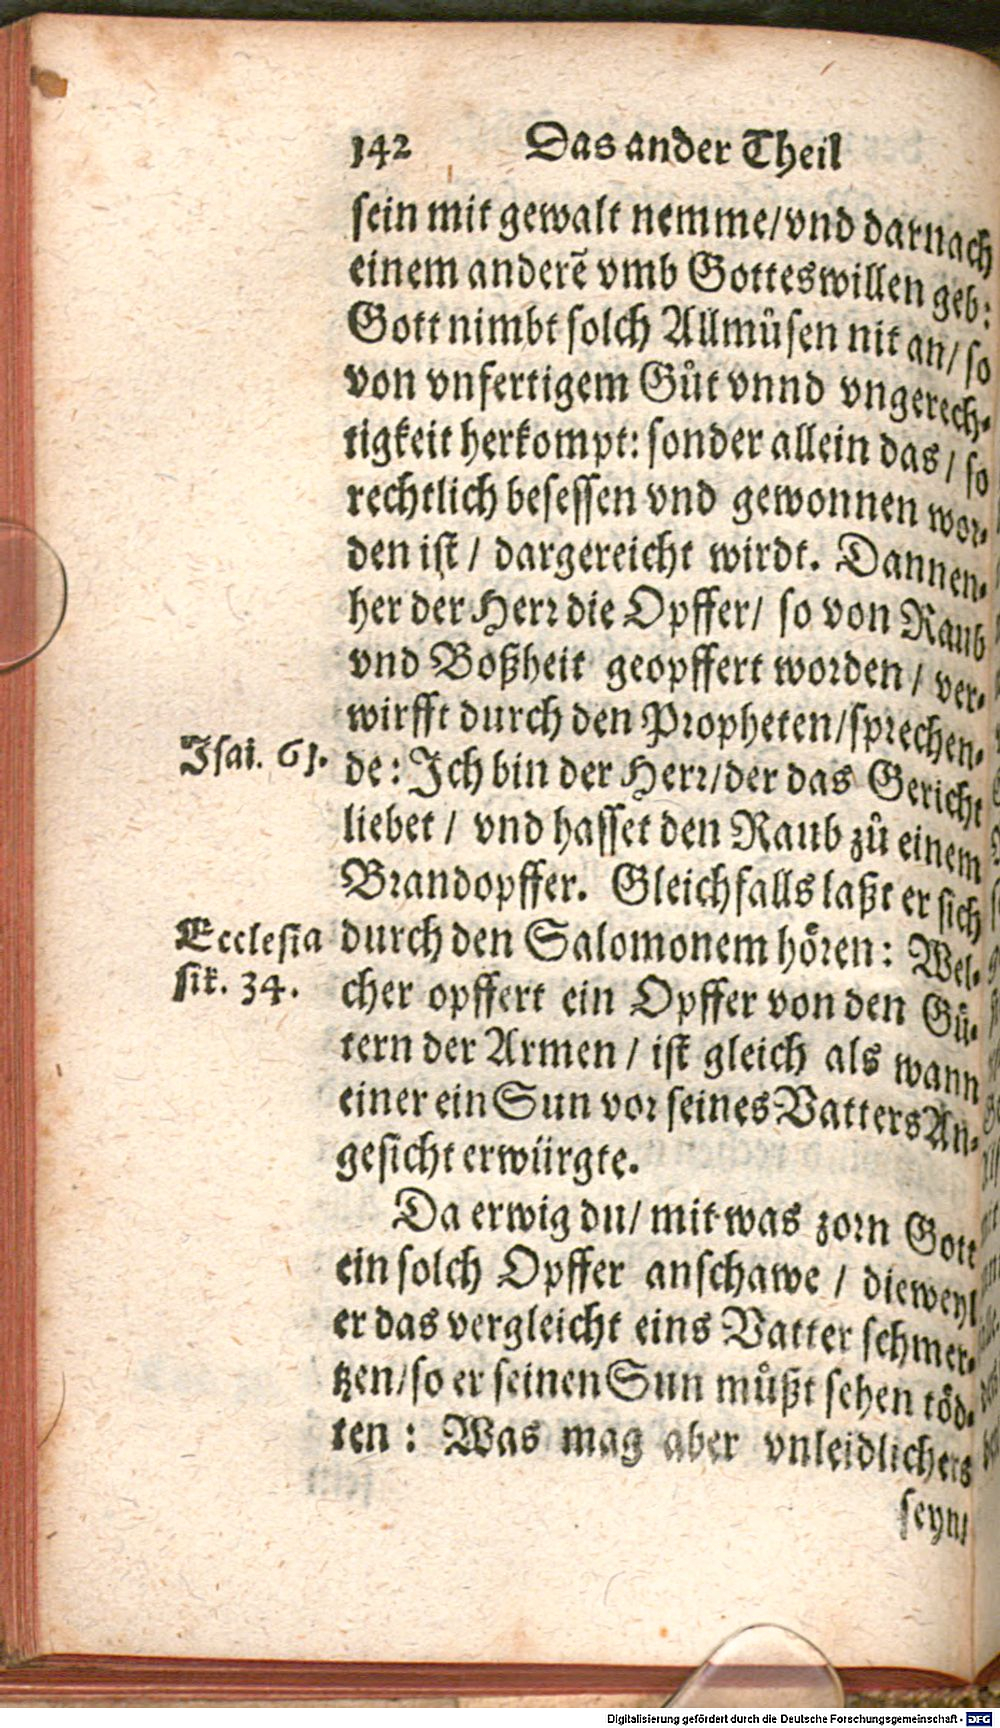 142 Das ander Theil
sein mit gewalt nemme/vnd darnach
einem anderẽ vmb Gotteswillen geb:
Gott nimbt solch Allmůsen nit an/ so
von vnfertigem Gůt vnnd vngerech-
tigkeit herkompt: sonder allein das/ so
rechtlich besessen vnd gewonnen wor-
den ist / dargereicht wirdt. Dannen-
her der Herr die Opffer/ so von Raub
vnd Boßheit geopffert worden / ver-
wirfft durch den Propheten/sprechen-
Isai. 61. de: Ich bin der Herr/der das Gericht
liebet / vnd hasset den Raub zů einem
Brandopffer. Gleichfalls laßt er sich
Ecclesia durch den Salomonem hören: Wel-
sik. 34. cher opffert ein Opffer von den Gü-
tern der Armen / ist gleich als wann
einer ein Sun vor seines Vatters An-
gesicht erwürgte.
Da erwig du/ mit was zorn Gott
ein solch Opffer anschawe / dieweyl
er das vergleicht eins Vatter schmer-
tzen/so er seinen Sun müßt sehen töd-
ten : Was mag aber vnleidlichers
seyn/
Digitalisierung gefördert durch die Deutsche Forschungsgemeinschaft - DFG